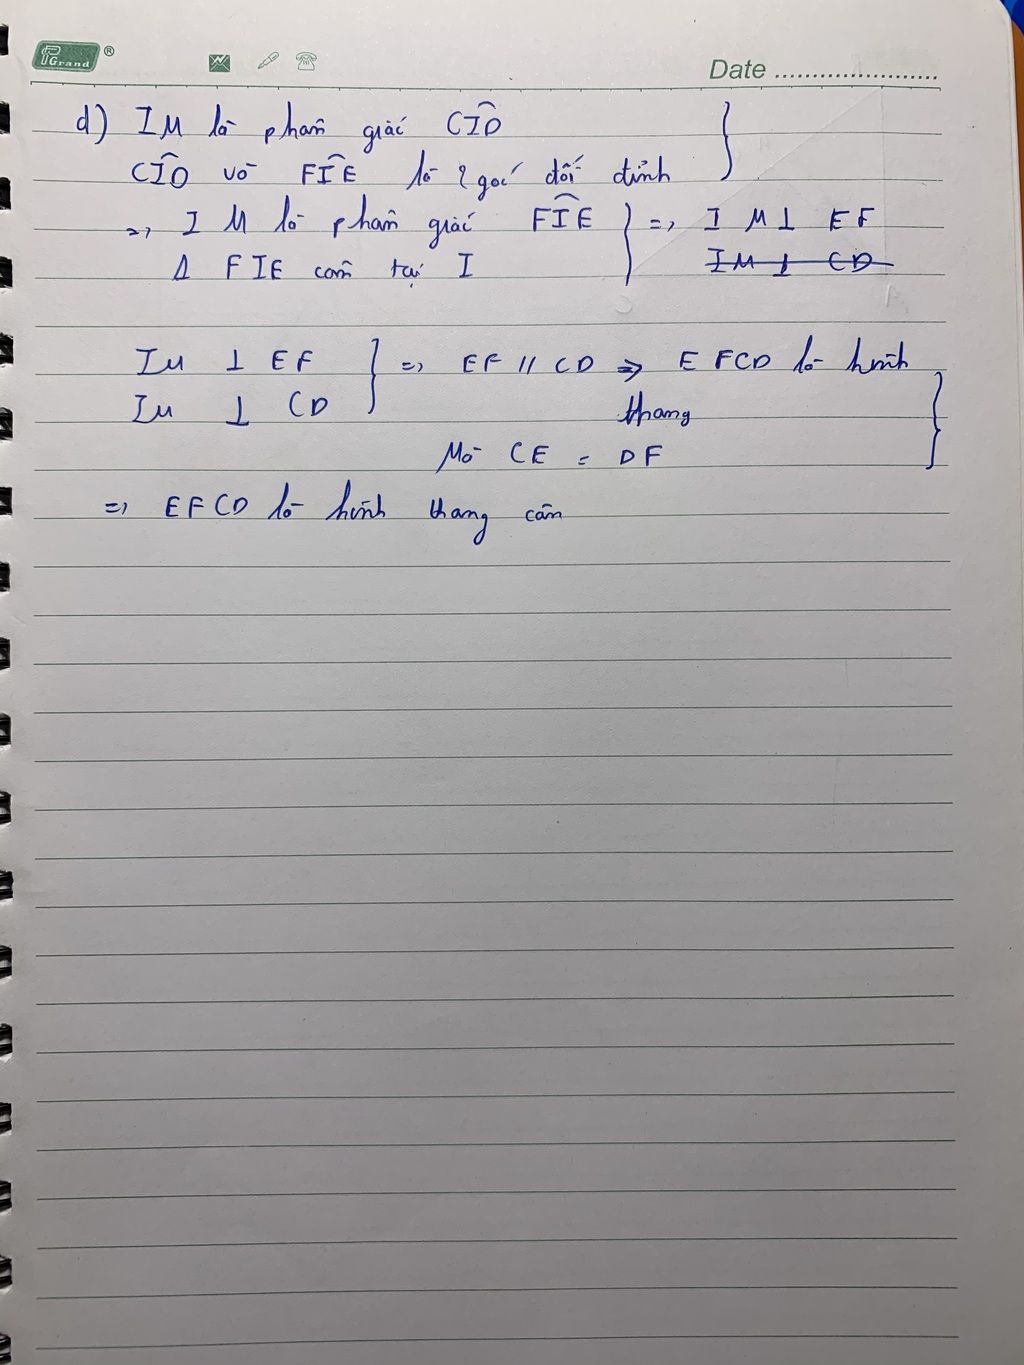 PGrand ®
Date ........................
d) IM là phân giác CÎD
CÎD và FÎE là 2 góc đối đỉnh
=> IM là phân giác FÎE => IM ⊥ EF
Δ FIE cân tại I IM ⊥ CD
IM ⊥ EF => EF // CD => EFCD là hình
IM ⊥ CD thang
Mà CE = DF
=> EFCD là hình thang cân